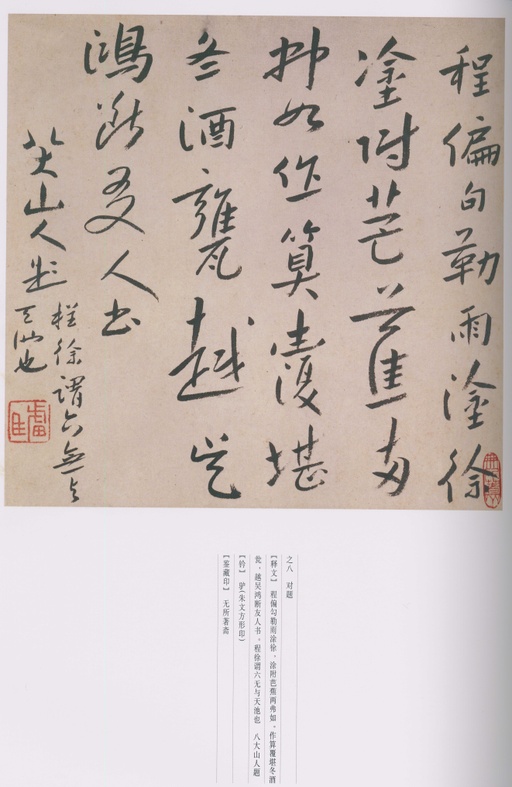 程偏句勒雨塗徐
塗附芒蕉两
弗如作算覆堪
冬酒瓮越㞮
鴻断友人书
程徐谓六无与
天池也
八大山人题
之八 对题
【释文】 程偏勾勒雨涂徐，涂附芭蕉两弗如。作算覆堪冬酒
瓮，越吴鸿断友人书。程徐谓六无与天池也 八大山人题
【钤】 驴（朱文方形印）
【鉴藏印】 无所著斋